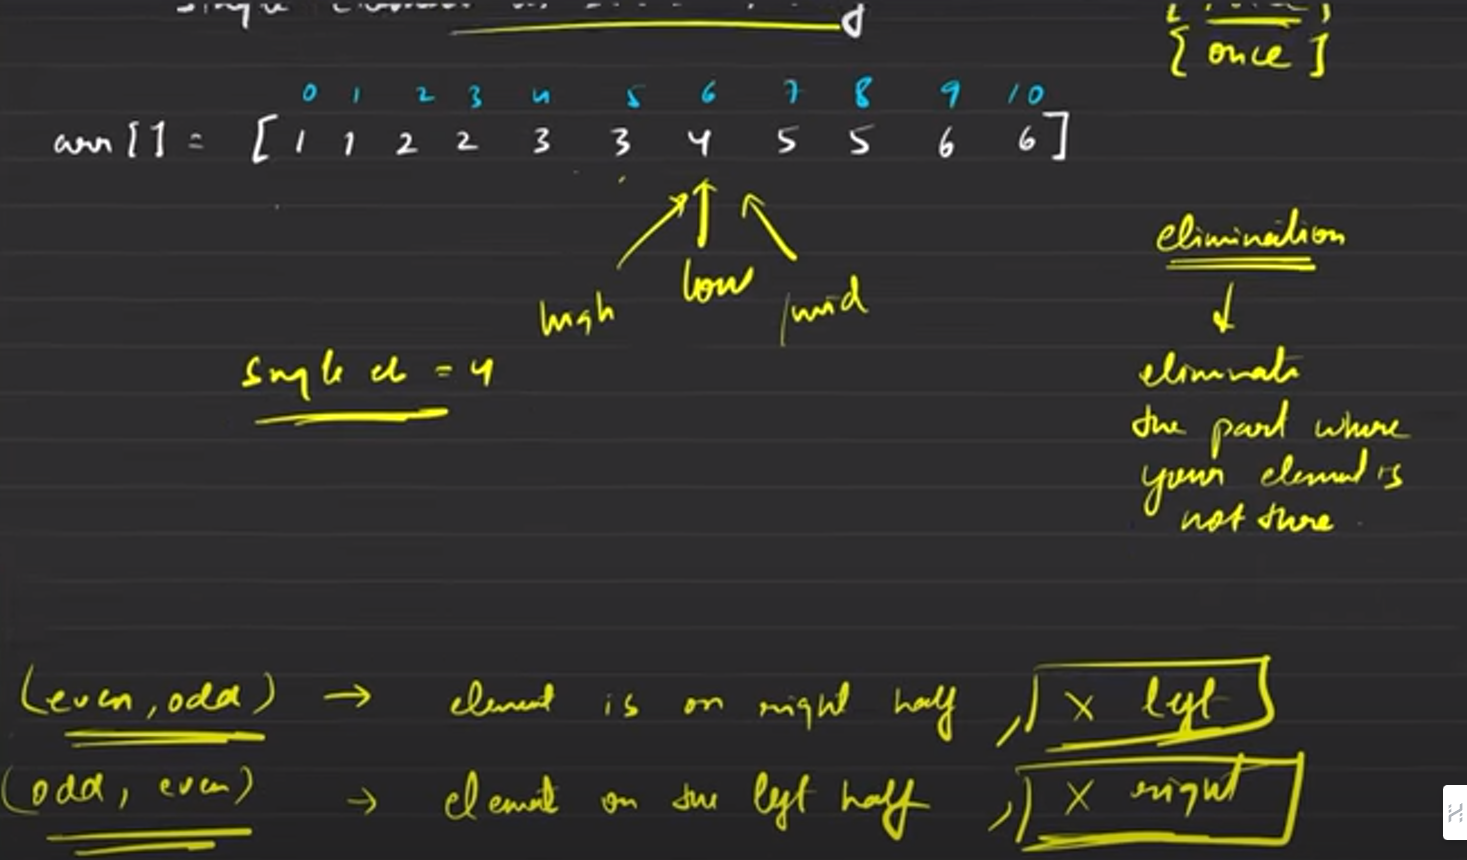 [ once ]
0 1 2 3 4 5 6 7 8 9 10
arr [ ] = [ 1 1 2 2 3 3 4 5 5 6 6 ]
elimination
low
high mid
eliminate
single el = 4
the part where
your element is
not there
(even, odd) → element is on right half, × left
(odd, even) → element on the left half, × right